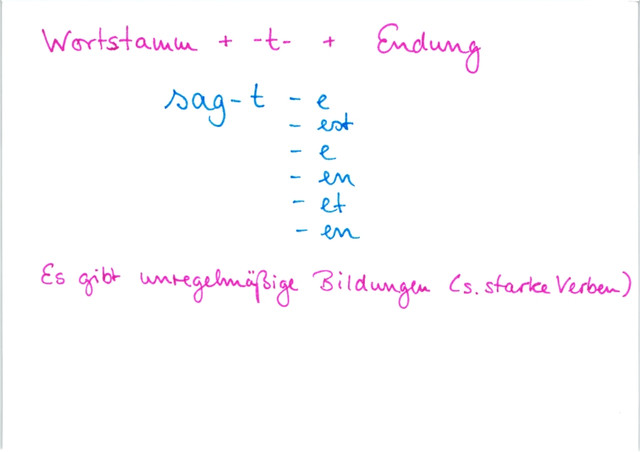 Wortstamm + -t- + Endung
sag-t - e
- est
- e
- en
- et
- en
Es gibt unregelmäßige Bildungen (s. starke Verben)